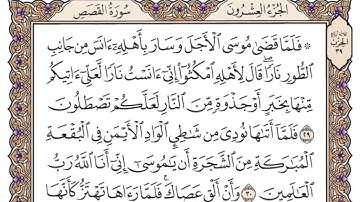 الجزء العشرون سورة القصص
۞ فَلَمَّا قَضَىٰ مُوسَى ٱلْأَجَلَ وَسَارَ بِأَهْلِهِۦٓ ءَانَسَ مِن جَانِبِ
ٱلطُّورِ نَارًا قَالَ لِأَهْلِهِ ٱمْكُثُوٓا۟ إِنِّىٓ ءَانَسْتُ نَارًا لَّعَلِّىٓ ءَاتِيكُم
مِّنْهَا بِخَبَرٍ أَوْ جَذْوَةٍ مِّنَ ٱلنَّارِ لَعَلَّكُمْ تَصْطَلُونَ
٢٩ فَلَمَّآ أَتَىٰهَا نُودِىَ مِن شَٰطِئِ ٱلْوَادِ ٱلْأَيْمَنِ فِى ٱلْبُقْعَةِ
ٱلْمُبَٰرَكَةِ مِنَ ٱلشَّجَرَةِ أَن يَٰمُوسَىٰٓ إِنِّىٓ أَنَا ٱللَّهُ رَبُّ
ٱلْعَٰلَمِينَ ٣٠ وَأَنْ أَلْقِ عَصَاكَ فَلَمَّا رَءَاهَا تَهْتَزُّ كَأَنَّهَا
الحزب
٣٩